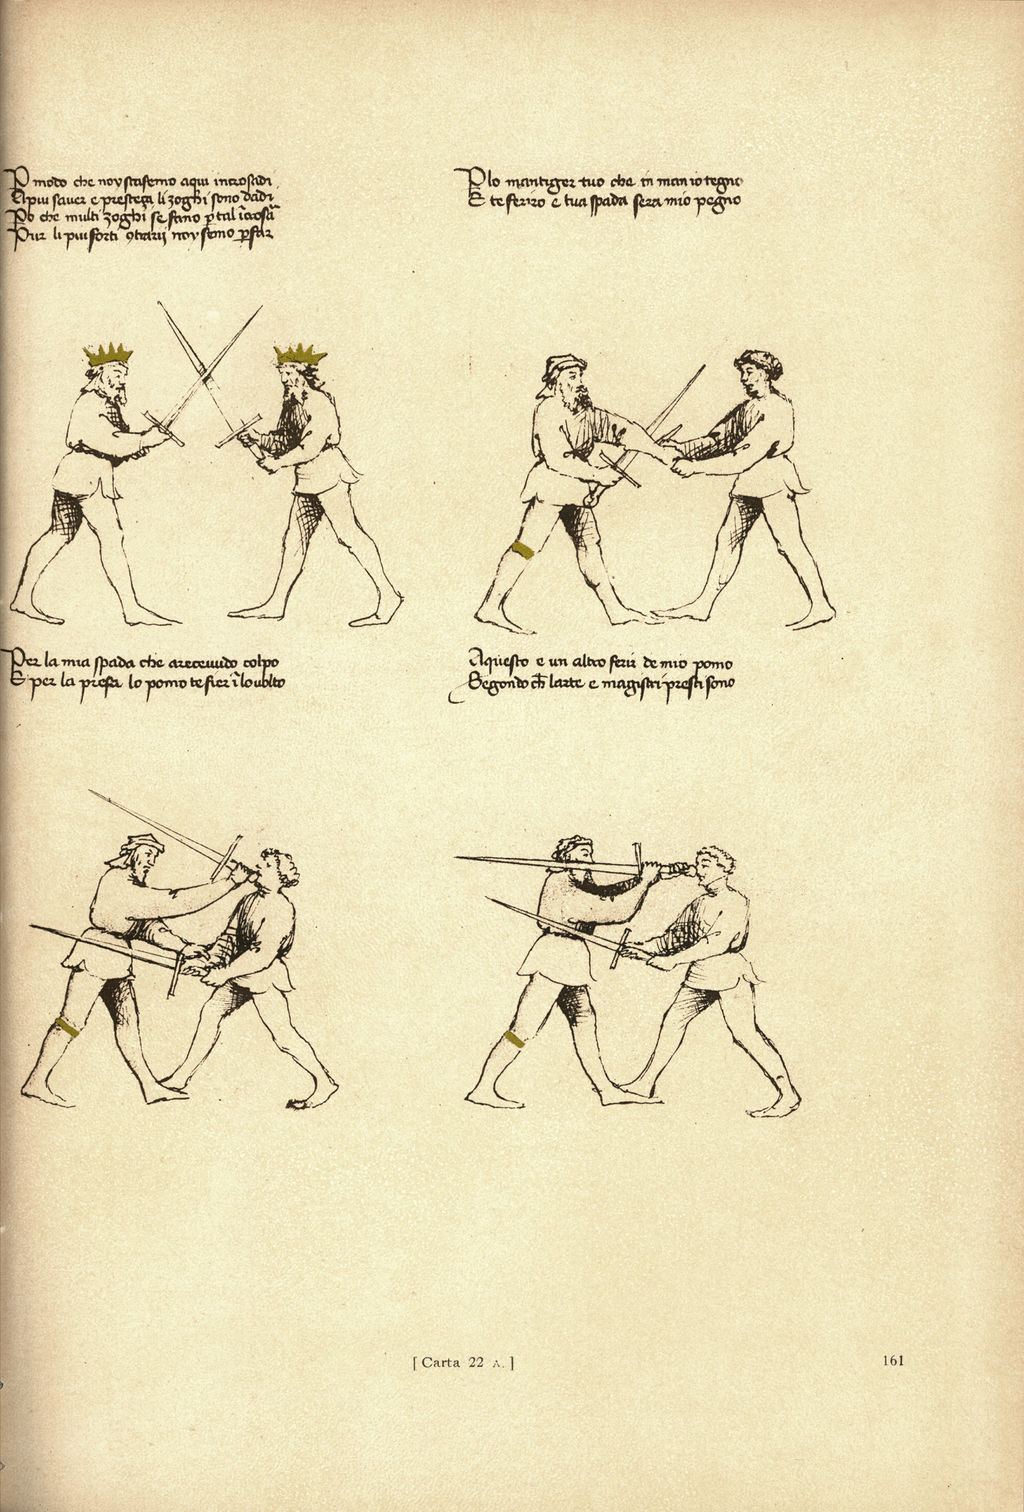 P modo che noy stasemo aqui incrosadi
A piu saver e presteza li zoghi sono dadi
Po che multi zoghi se fano p tal icrosa
Pur li piu forti 9trarij noy semo p far
Plo mantiger tuo che in man io tegno
E te feriro e tua spada sera mio pegno
Per la mia spada che a recevudo colpo
E per la presa lo pomo te fier i lo volto
Aquesto e un altro ferir de mio pomo
Segondo ch larte e magistri presti sono
[ Carta 22 A. ]
161